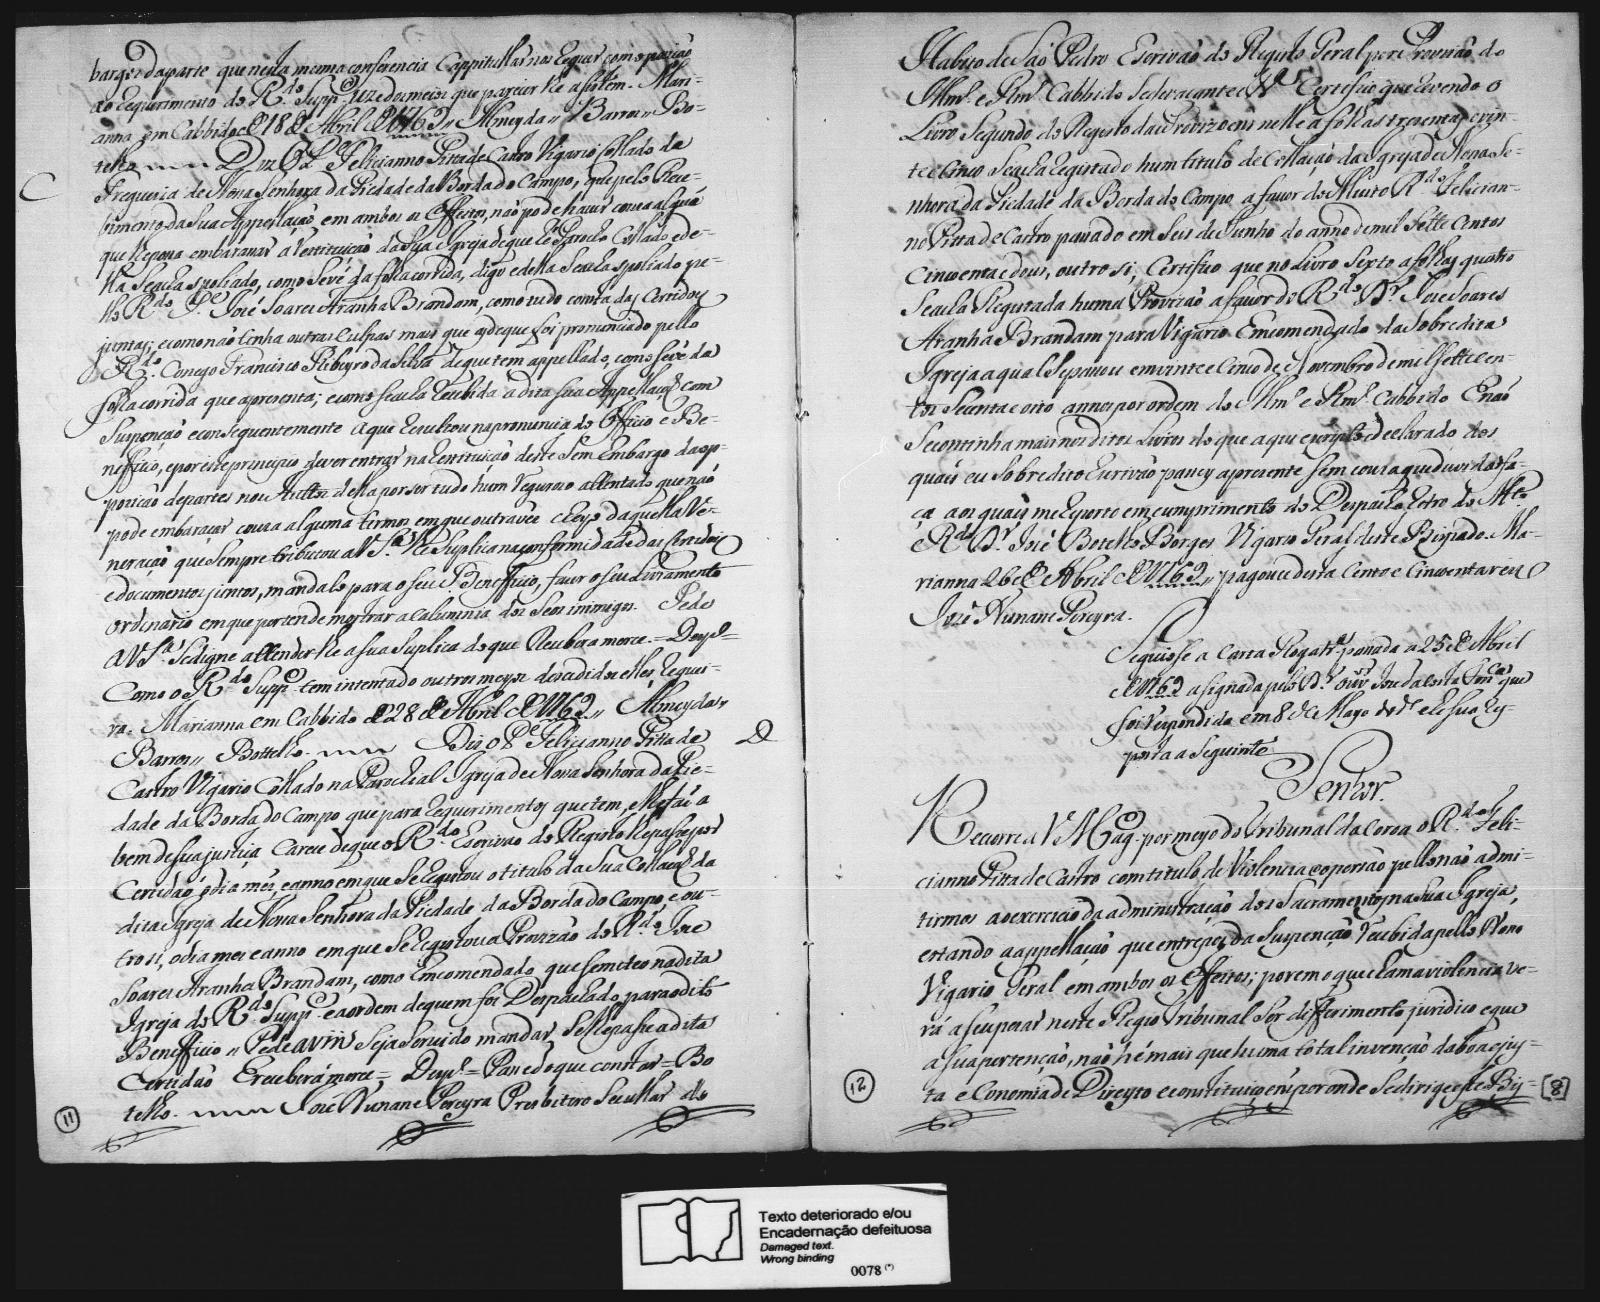 bargos da parte que nesta mesma conferencia Cappitullar nos requer com opozição
ao requerimento do R.do Supp.e uze dos meios que parecer lhe assistem. Mari-
anna em Cabbido de 18 de Abril de 1769,, Almeyda,, Barros,, Bo-
telho Diz o P.e Felicianno Pitta de Castro Vigario Collado da
Freguezia de Nossa Senhora da Piedade da Borda do Campo, que pelo Rece-
bimento da sua Appellação em ambos os Effeitos, não pode haver couza alguã
que se possa embaraçar a Restituição da Sua Igreja de que he Parocho Collado e de-
lla Se acha spoliado, como Se vê da folha corrida, digo e della Se acha spoliado pe-
llo R.do P.e José Soares Aranha Brandam, como tudo consta das Certidoẽs
juntas; e como não tenha outras Culpas mais que a de que foi pronunciado pello
R.do Conego Francisco Ribeyro da Silva de que tem appellado, como Se vê da
folha corrida que aprezenta; e como se acha recebida a dita sua Appellaçaõ com
Suspenção e conseguentemente a que rezultou na pronuncia do Officio e Be-
nefficio, e por este principio dever entrar na Restituição deste Sem Embargo da op-
pozicão de partes nos Auttos della por ser tudo hum rigurozo attentado que não
pode embaraçar couza alguma termos em que outra vez cheyo daquella Ve-
neração que Sempre tributou a V S.as lhe Suplica na conformidade das Certidoẽs
e documentos juntos, mandalo para o seu Benefficio, fazer o seu Livramento
ordinario em que pertende mostrar a Calumnia dos Seos inimigos. Pede
a V S.as Se digne attender lhe a sua Suplica do que Receberá merce = Desp.o =
Como o R.do Supp.e tem intentado outros meyos decedidos elles, requei-
ra. Marianna em Cabbido de 28 de Abril de 1769,, Almeyda,,
Barros,, Bottelho. Diz o P.e Felicianno Pitta de
Castro Vigario Collado na Parochial Igreja de Nossa Senhora da Pie-
dade da Borda do Campo que para requerimentos que tem, e lhe faz a
bem de sua justiça Carece de que o R.do Escrivão do Registo lhe passe por
Certidão o dia mes, e anno em que Se registou o titulo da Sua Collaçaõ da
dita Igreja de Nossa Senhora da Piedade da Borda do Campo, e ou-
tro si, o dia mes e anno em que Se registou a Provizão do R.do Joze
Soares Aranha Brandam, como Emcomendado que Se meteo na dita
Igreja do R.do Supp.e e a ordem de quem foi Despachado para o dito
Benefficio,, Pede a V m Seja Servido mandar Se lhe passe a dita
Certidão E recebera merce = Desp.o = Passe do que constar = Bo
telho. José Nunan Pereyra Presbitero Secullar do
C
D
11
Habito de São Pedro Escrivão do Registo Geral por Provizão do
Illm.o e Rm.o Cabbido Sede vacante &.a Certifico que revendo o
Livro Segundo do Registo das Provizoens nelle a folhas trezentas e vin-
te e cinco Se acha registado hum titulo de Collação da Igreja de Nossa Se-
nhora da Piedade da Borda do Campo a favor do Muito R.do Felician-
no Pitta de Castro passado em Seis de Junho do anno de mil Sette Centos
Cincoenta e dous, outro si, Certifico que no Livro Sexto a folhas quatro
Se acha Registada huma Provizão a favor do R.do D.r Jose Soares
Aranha Brandam para Vigario Emcomendado da Sobredita
Igreja a qual Se passou em vinte e Cinco de Novembro de mil Sette cen-
tos Secenta e oito annos por ordem do Illm.o e Rm.o Cabbido E não
Se continha mais nos ditos Livros do que aqui escripto e declarado dos
quais eu Sobredito Escrivão passey a prezente Sem couza que duvida fa-
ça aos quais me reporto em cumprimento do Despacho retro do M.to
e R.do D.r José Botelho Borges Vigario Geral deste Bispado. Ma-
rianna 26 de Abril de 1769,, pagou desta Cento e Cincoenta reis
José Nunan Pereyra.
Seguiose a Carta Rogat.a passada a 25 de Abril
de 1769 asignada pelo D.r Ouv.or Joze da Costa Fon.ca que
foi respondida em 8 de Mayo do d.o e he sua res-
posta a Seguinte
Senhor.
Recorre a V Mag.e por meyo do tribunal da Coroa o R.do P.e Feli-
cianno Pitta de Castro com titulo de Violencia e opersão pello não admi-
tirmos ao exercicio da administração dos Sacramentos na sua Igreja,
estando a appellação que entrepoz da Suspenção recebida pello Nosso
Vigario Geral em ambos os Effeitos; porem o que clama violencia ve-
rá a seu pezar neste Regio Tribunal Ser differimento juridico e que
a sua pertenção, não hé mais que huma total invenção da boa e jus-
ta e Conomia de Direyto e constituiçoẽs por onde Se dirige este Bis-
12
[8]
Texto deteriorado e/ou
Encadernação defeituosa
Damaged text.
Wrong binding
0078 (*)